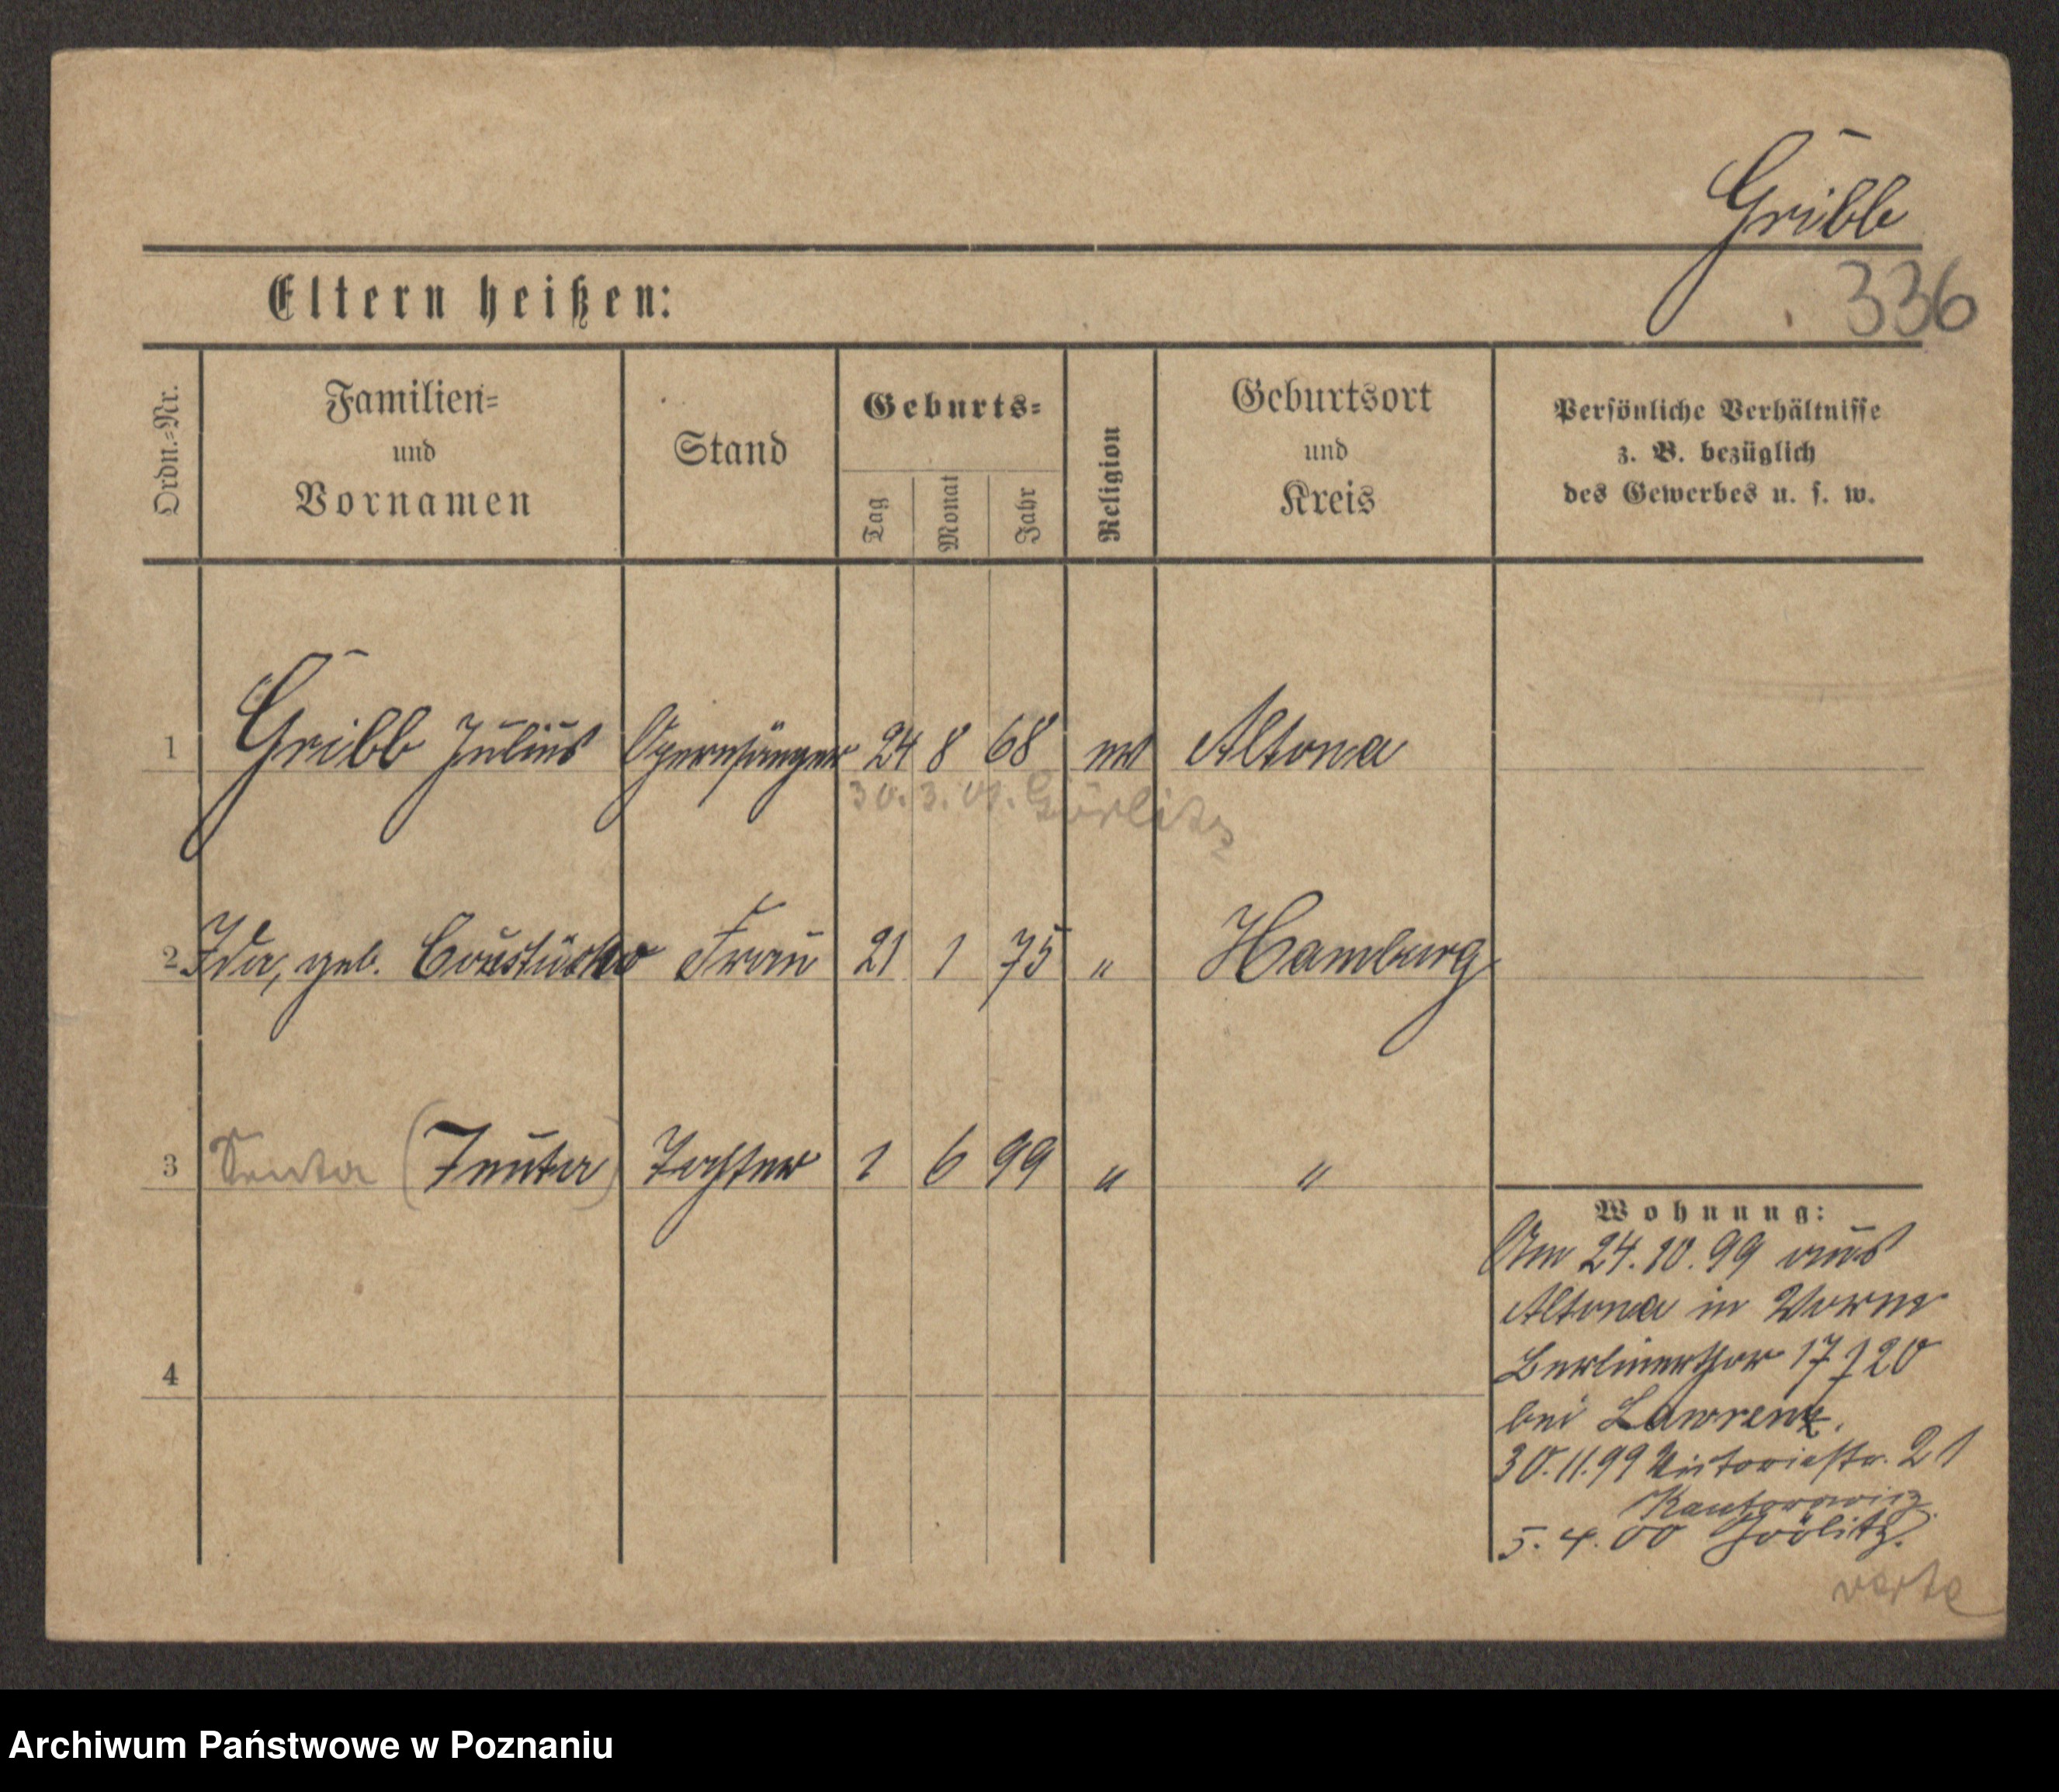 Gribb
336
Eltern heißen:
Ordn.=Nr.
Familien=
und
Vornamen
Stand
Geburts=
Tag
Monat
Jahr
Religion
Geburtsort
und
Kreis
Persönliche Verhältnisse
z. B. bezüglich
des Gewerbes u. s. w.
1 Gribb Julius Opernsänger 24 8 68 ev Altona
30. 3. 01. Görlitz
2 Ida, geb. Frau 21 1 75 " Hamburg
3 Senta ( ) Tochter 1 6 99 " "
4
Wohnung:
Am 24. 10. 99 aus
Altona in
Berlinerthor 17 / 20
bei Lawrenz.
30. 11. 99 Victoriastr. 21
Kantorowicz
5. 4. 00 Görlitz.
verte
Archiwum Państwowe w Poznaniu